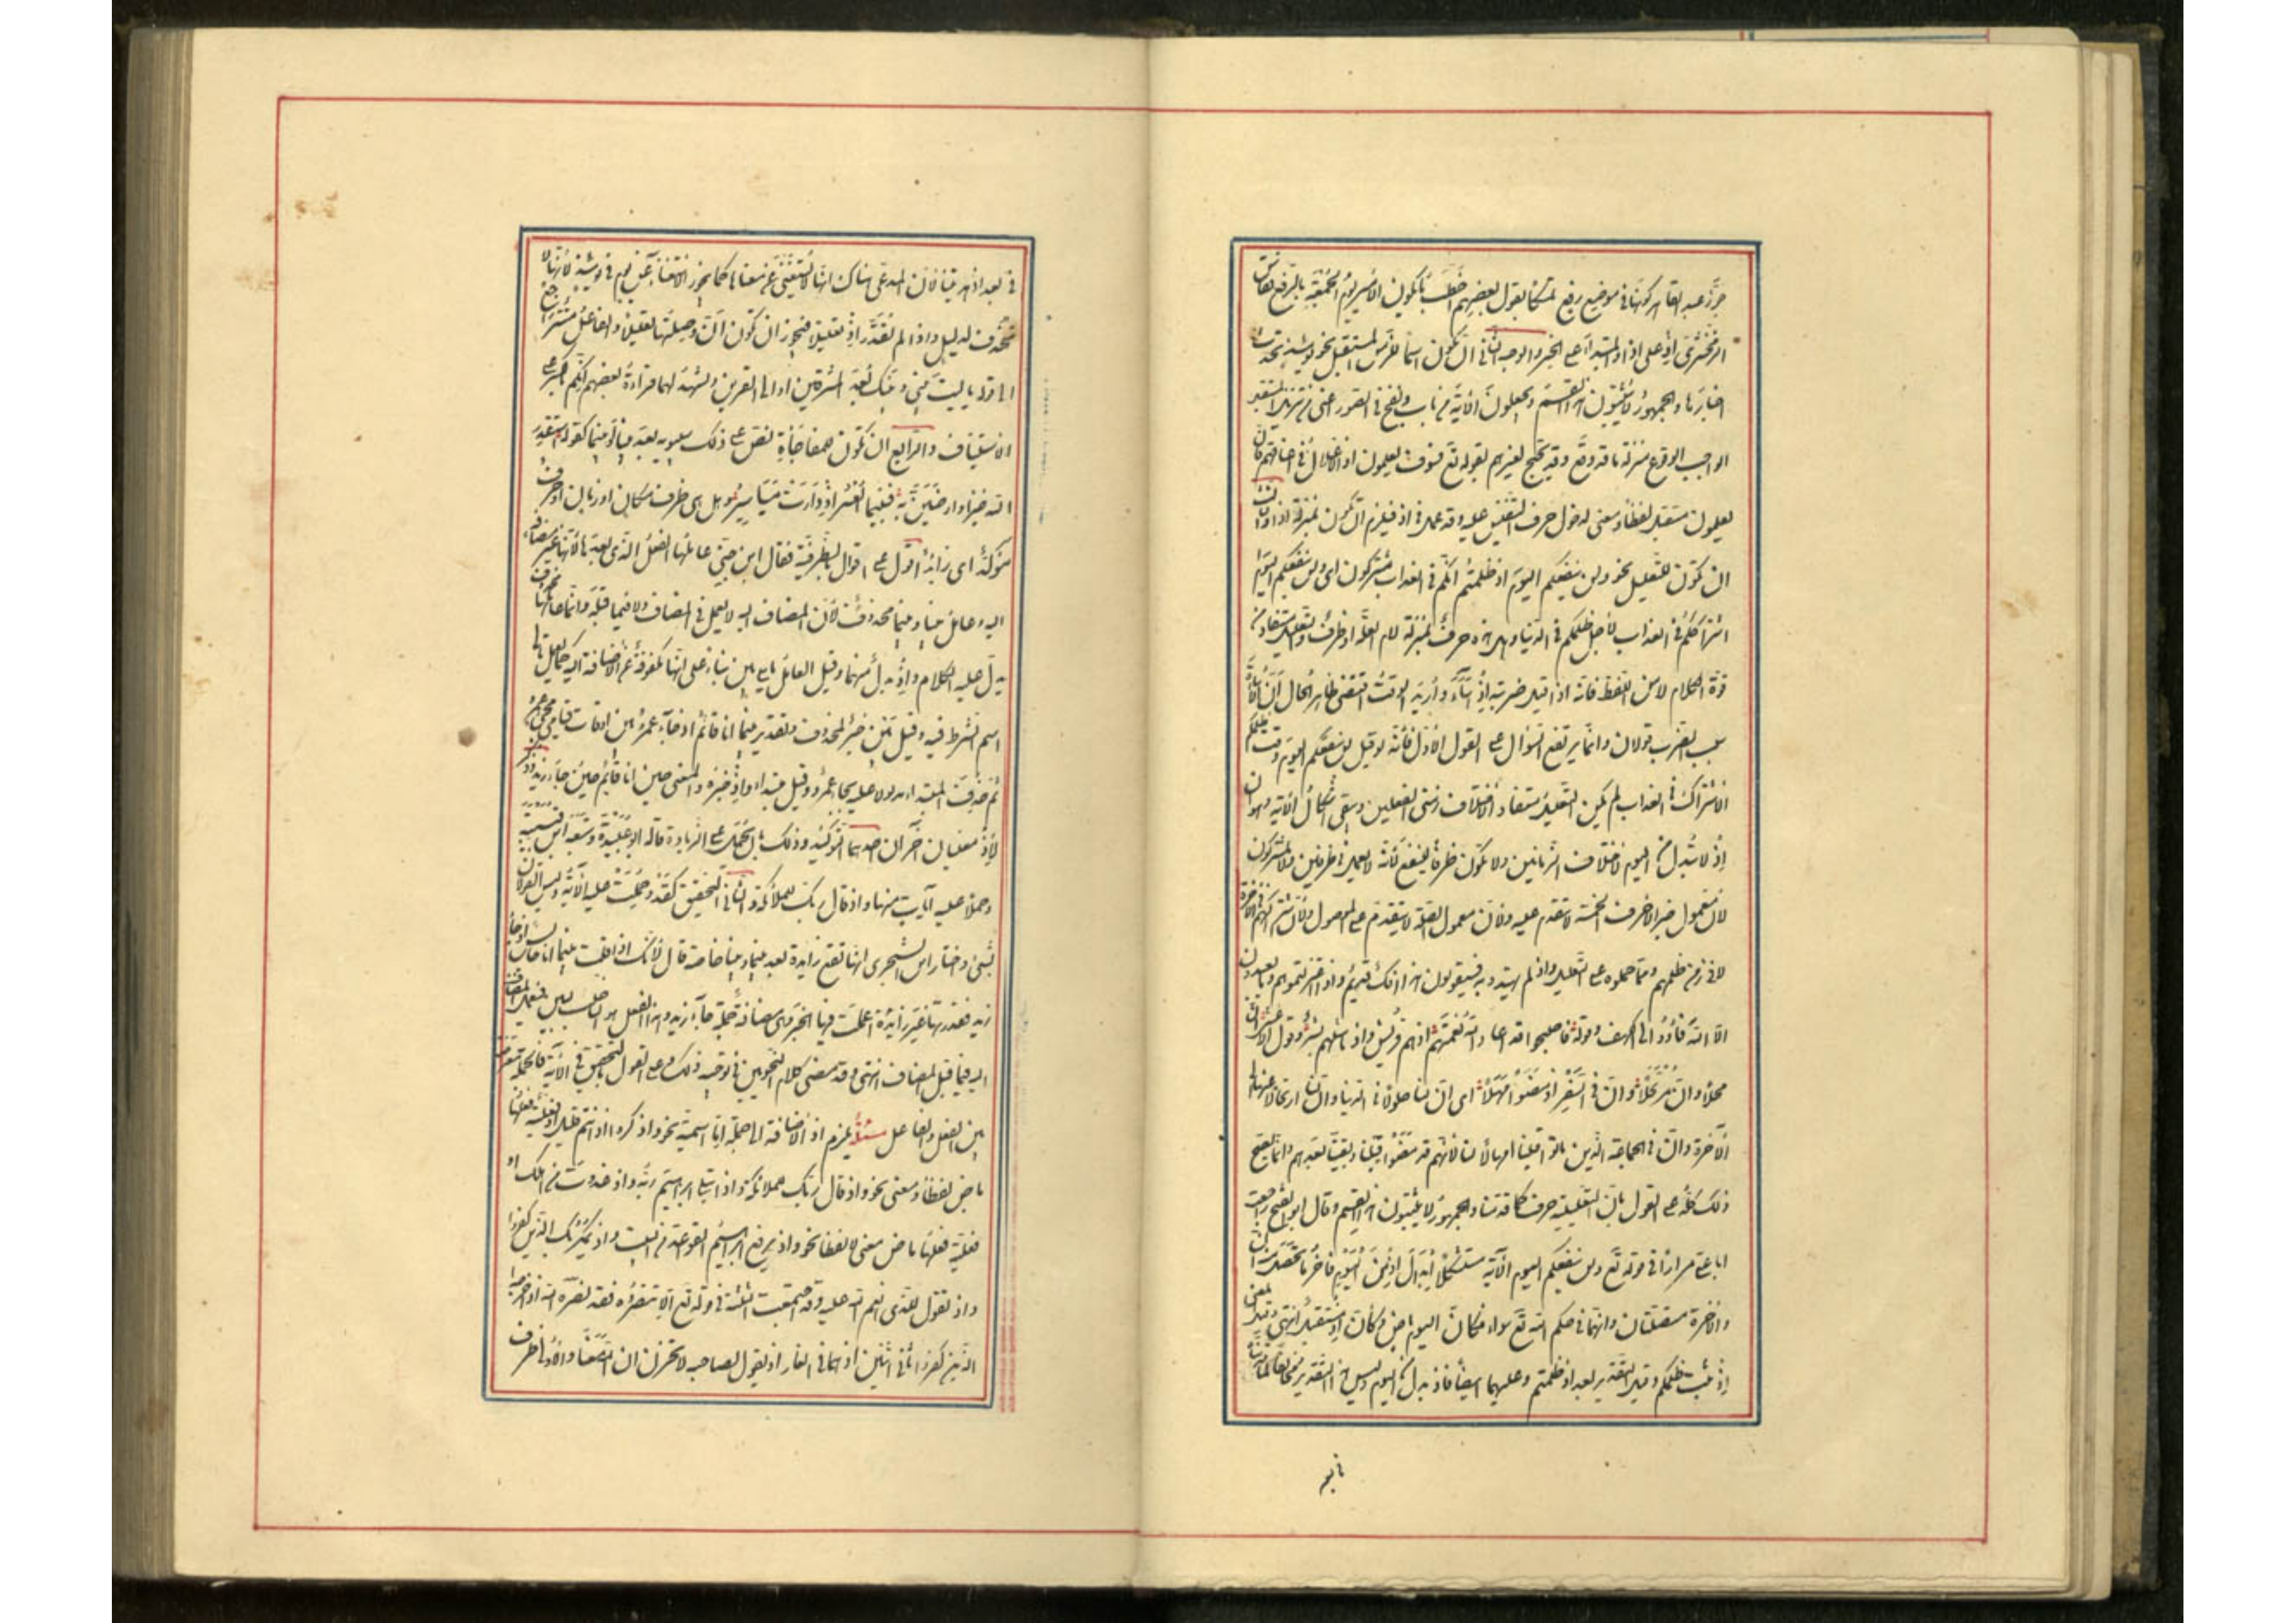 جوز عبد القاهر كونها في موضع رفع تمسكا بقول بعضهم اخطب ما يكون الامير يوم الجمعة بالرفع فقاس
الزمخشري اذ على اذا والمبتدأ على الخبر والوجه الثاني ان تكون اسما للزمن المستقبل نحو يومئذ تحدث
اخبارها والجمهور لا يثبتون هذا القسم ويجعلون الآية من باب ونفخ في الصور اعني من تنزيل المستقبل
الواجب الوقوع منزلة ما قد وقع وقد يحتج لغيرهم بقوله تع فسوف يعلمون اذ الاغلال في اعناقهم فان
يعلمون مستقبل لفظا ومعنى لدخول حرف التنفيس عليه وقد عمل في اذ فيلزم ان تكون بمنزلة اذا والثالث
ان تكون للتعليل نحو ولن ينفعكم اليوم اذ ظلمتم انكم في العذاب مشتركون اى ولن ينفعكم اليوم
اشتراككم في العذاب لاجل ظلمكم في الدنيا وهل هذه حرف بمنزلة لام العلة او ظرف والتعليل مستفاد من
قوة الكلام لا من اللفظ فانه اذا قيل ضربته اذ اساء واريد الوقت اقتضى ظاهر الحال ان الاساءة
سبب الضرب قولان وانما يرتفع السؤال على القول الاول فانه لو قيل لن ينفعكم اليوم وقت ظلمكم
الاشتراك في العذاب لم يكن التعليل مستفادا لاختلاف زمني الفعلين ويبقى اشكال في الآية وهو ان
اذ لا تبدل من اليوم لاختلاف الزمانين ولا تكون ظرفا لينفع لانه لا يعمل في ظرفين ولا لمشتركون
لان معمول خبر الاحرف الخمسة لا يتقدم عليه ولان معمول الصلة لا يتقدم على الموصول ولان اشتراكهم في الآخرة
لا في زمن ظلمهم ومما حملوه على التعليل واذ لم يهتدوا به فسيقولون هذا افك قديم واذ اعتزلتموهم وما يعبدون
الا الله فأووا الى الكهف وقوله فاصبحوا قد اعاد الله نعمتهم اذ هم قريش واذ ما مثلهم بشر وقول الاعشى ان
محلا وان مرتحلا وان في السفر اذ مضوا مهلا اى ان لنا حلولا في الدنيا وان لنا ارتحالا عنها الى
الآخرة وان في الجماعة الذين ماتوا قبلنا امهالا لنا لانهم قد مضوا قبلنا وبقينا بعدهم وانما يصح
ذلك كله على القول بان اذ التعليلية حرف كما قدمنا والجمهور لا يثبتون هذا القسم وقال ابو الفتح راجعت
ابا علي مرارا في قوله تع ولن ينفعكم اليوم الآية مستشكلا ابدال اذ من اليوم فآخر ما تحصل منه ان الدنيا
والآخرة متصلتان وانهما في حكم الله تع سواء فكان اليوم ماض وكان اذ مستقبل انتهى وقيل المعنى
اذ ثبت ظلمكم وقيل التقدير بعد اذ ظلمتم وعليهما ايضا فاذ بدل من اليوم وليس في التقدير مخالفا لما قلناه
في بعد
في بعد اذ هديتنا لان المدعى هناك انها لا يستغنى عن معناها كما يجوز الاستغناء عن يوم في يومئذ لانها لا
تحذف لدليل واذا لم تقدر اذ تعليلا فيجوز ان تكون ان وصلتها تعليلا والفاعل مستترا راجع
الى قوله يا ليت بيني وبينك بعد المشرقين او الى القرين ويشهد لهما قراءة بعضهم انكم بالكسر على
الاستيناف والرابع ان تكون للمفاجأة نص على ذلك سيبويه بعد بينا او بينما كقوله استقدر
الله خيرا وارضين به فبينما العسر اذ دارت مياسير وهل هي ظرف مكان او زمان او حرف
مؤكد اى زائد اقول على اقوال الظرفية فقال ابن جني عاملها الفعل الذي بعدها لانها غير مضافة
اليه وعامل بينا وبينما محذوف لان المضاف اليه لا يعمل في المضاف ولا فيما قبله وانما عاملها محذوف
يدل عليه الكلام واذ بدل منهما وقيل العامل ما يلي بين بناء على انها مكفوفة عن الاضافة اليه كما يعمل تالي
اسم الشرط فيه وقيل بين خبر لمحذوف وتقدير بينما انا قائم اذ جاء عمرو بين اوقات قيامي مجيء عمرو
ثم حذف المبتدأ مدلولا عليه بجاء عمرو وقيل مبتدأ واذ خبره والمعنى حين انا قائم حين جاء زيد وذكر
لاذ معنيان آخران احدهما التوكيد وذلك بان تحمل على الزيادة قاله ابو عبيدة وتبعه ابن قتيبة
وحملا عليه آيات منها واذ قال ربك للملائكة والثاني التحقيق كقد وحملت عليه الآية وليس القولان
بشيء واختار ابن الشجري انها تقع زايدة بعد بينما وبينا خاصة قال لانك اذا قلت بينما انا جالس اذ جاء
زيد فقدرتها غير زايدة اعملت فيها الخبر وهي مضافة الى جملة جاء زيد وهذا الفعل هو الناصب لبين فيعمل المضاف
اليه فيما قبل المضاف انتهى وقد مضى كلام النحويين في توجيه ذلك وعلى القول بالتحقيق في الآية فالجملة معترضة
بين الفعل والفاعل مسئلة يلزم اذ الاضافة الى جملة اما اسمية نحو واذكروا اذ انتم قليل او فعلية فعلها
ماض لفظا ومعنى نحو واذ قال ربك للملائكة واذ ابتلى ابراهيم ربه واذ غدوت من اهلك او
فعلية فعلها ماض معنى لا لفظا نحو واذ يرفع ابراهيم القواعد من البيت واذ يمكر بك الذين كفروا
واذ تقول للذي انعم الله عليه وقد اجتمعت الثلثة في قوله تع الا تنصروه فقد نصره الله اذ اخرجه
الذين كفروا ثاني اثنين اذ هما في الغار اذ يقول لصاحبه لا تحزن ان الله معنا والاولى ظرف